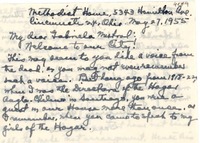 Methodist Home, 5343 Hamilton Ave
Cincinnati 24, Ohio, May 27, 1955
My dear Gabriela Mistral:
Welcome to our City!
This may seem to you like a voice from
the dead, as you may not remember
such a person. But long ago from 1918-29,
when I was the Directora of the Hogar
Inglés, Chileno in Santiago, you were a
guest in our House more than once, as
I remember, when you came to speak to my
girls of the Hogar.